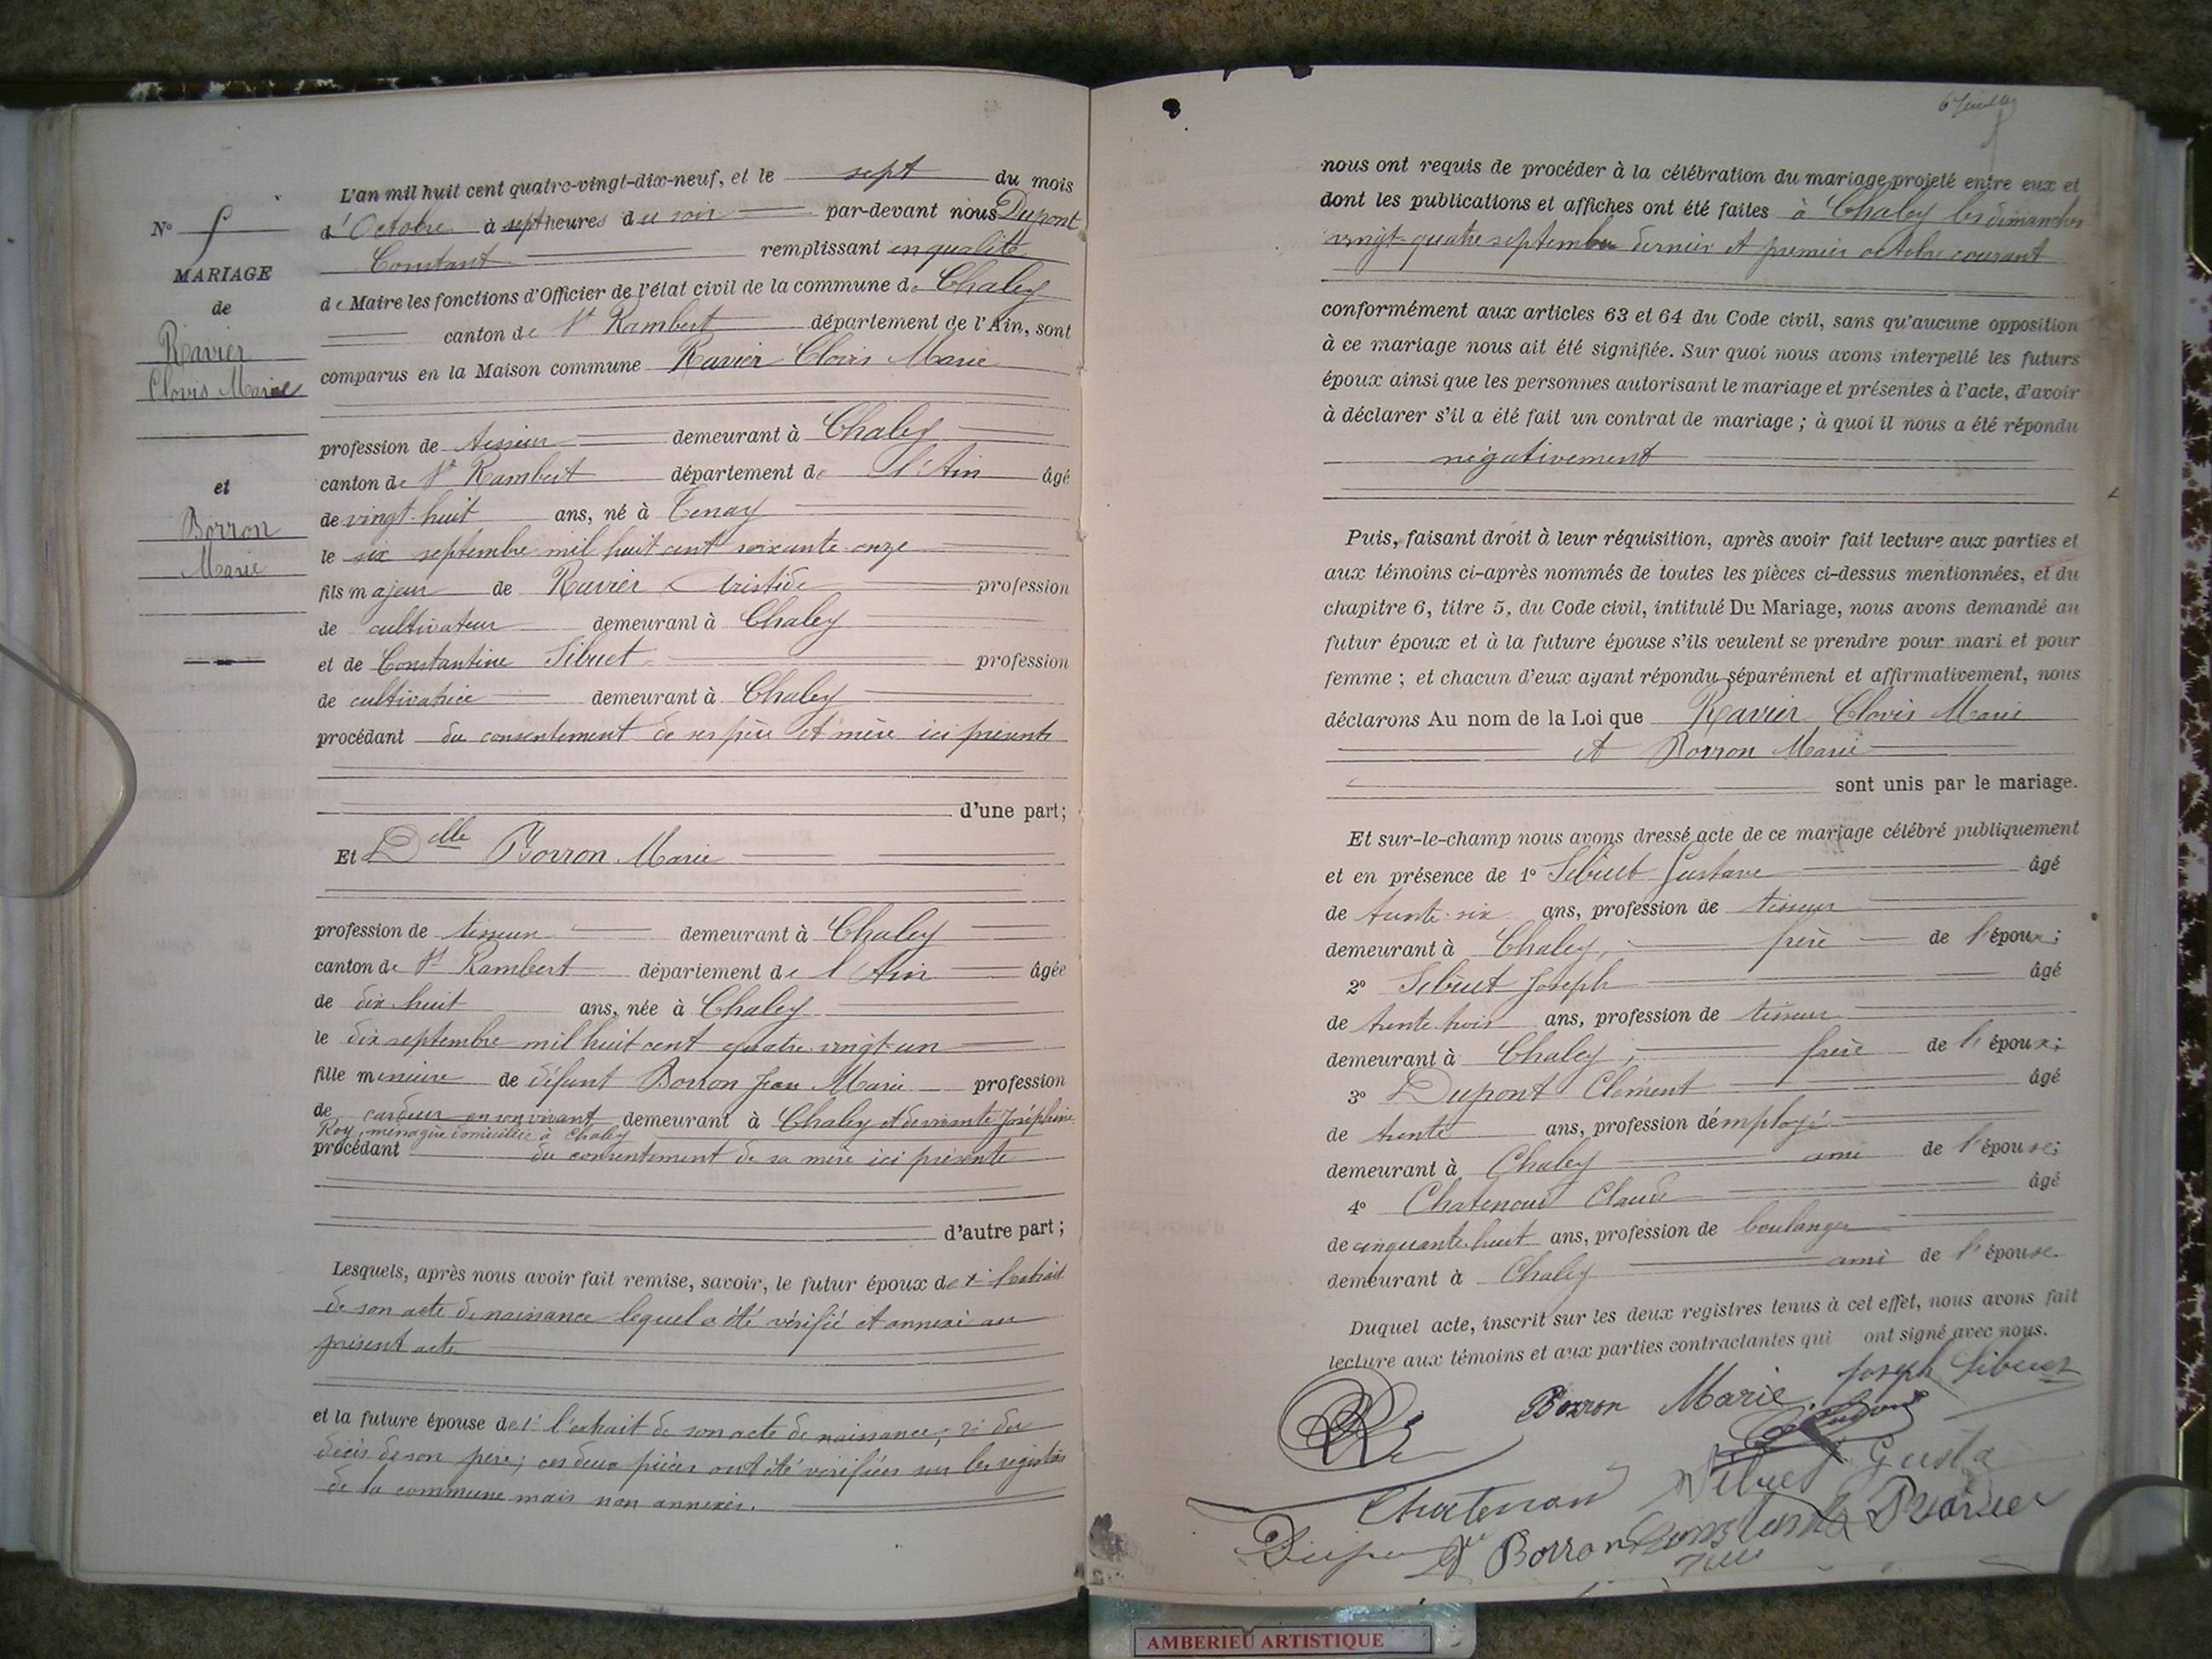 L'an mil huit cent quatre-vingt-dix-neuf, et le sept du mois
d'Octobre à sept heures du soir par-devant nous Dupont
Constant remplissant en qualité
de Maire les fonctions d'Officier de l'état civil de la commune de Chaley
canton de St Rambert département de l'Ain, sont
comparus en la Maison commune Ravier Clovis Marie
profession de tisseur demeurant à Chaley
canton de St Rambert département de l'Ain âgé
de vingt-huit ans, né à Tenay
le six septembre mil huit cent soixante-onze
fils majeur de Ravier Aristide profession
de cultivateur demeurant à Chaley
et de Constantine Sibuet profession
de cultivatrice demeurant à Chaley
procédant du consentement de ses père et mère ici présents
d'une part;
Et Delle Borron Marie
profession de tisseur demeurant à Chaley
canton de St Rambert département de l'Ain âgée
de dix-huit ans, née à Chaley
le dix septembre mil huit cent quatre-vingt-un
fille mineure de défunt Borron Jean Marie profession
de cardeur en son vivant demeurant à Chaley et de vivante Joséphine
Roy, ménagère domiciliée à Chaley
procédant du consentement de sa mère ici présente
d'autre part;
Lesquels, après nous avoir fait remise, savoir, le futur époux de l'extrait
de son acte de naissance lequel a été vérifié et annexé au
présent acte
et la future épouse de 1° l'extrait de son acte de naissance; 2° du
décès de son père; ces deux pièces ont été vérifiées sur les registres
de la commune mais non annexées.
N°
MARIAGE
de
Ravier
Clovis Marie
et
Borron
Marie
nous ont requis de procéder à la célébration du mariage projeté entre eux et
dont les publications et affiches ont été faites à Chaley les dimanches
vingt-quatre septembre dernier et premier octobre courant
conformément aux articles 63 et 64 du Code civil, sans qu'aucune opposition
à ce mariage nous ait été signifiée. Sur quoi nous avons interpellé les futurs
époux ainsi que les personnes autorisant le mariage et présentes à l'acte, d'avoir
à déclarer s'il a été fait un contrat de mariage; à quoi il nous a été répondu
négativement
Puis, faisant droit à leur réquisition, après avoir fait lecture aux parties et
aux témoins ci-après nommés de toutes les pièces ci-dessus mentionnées, et du
chapitre 6, titre 5, du Code civil, intitulé Du Mariage, nous avons demandé au
futur époux et à la future épouse s'ils veulent se prendre pour mari et pour
femme; et chacun d'eux ayant répondu séparément et affirmativement, nous
déclarons Au nom de la Loi que Ravier Clovis Marie
et Borron Marie
sont unis par le mariage.
Et sur-le-champ nous avons dressé acte de ce mariage célébré publiquement
et en présence de 1° Sibuet Gustave âgé
de trente-six ans, profession de tisseur
demeurant à Chaley, frère de l'époux;
2° Sibuet Joseph âgé
de trente-trois ans, profession de tisseur
demeurant à Chaley, frère de l'époux;
3° Dupont Clément âgé
de trente ans, profession d'employé
demeurant à Chaley ami de l'épouse;
4° Chatenoud Claude âgé
de cinquante-huit ans, profession de boulanger
demeurant à Chaley ami de l'épouse.
Duquel acte, inscrit sur les deux registres tenus à cet effet, nous avons fait
lecture aux témoins et aux parties contractantes qui ont signé avec nous.
Borron Marie Joseph Sibuet
Sibuet Gusta
Chatenoud
Borron
AMBERIEU ARTISTIQUE